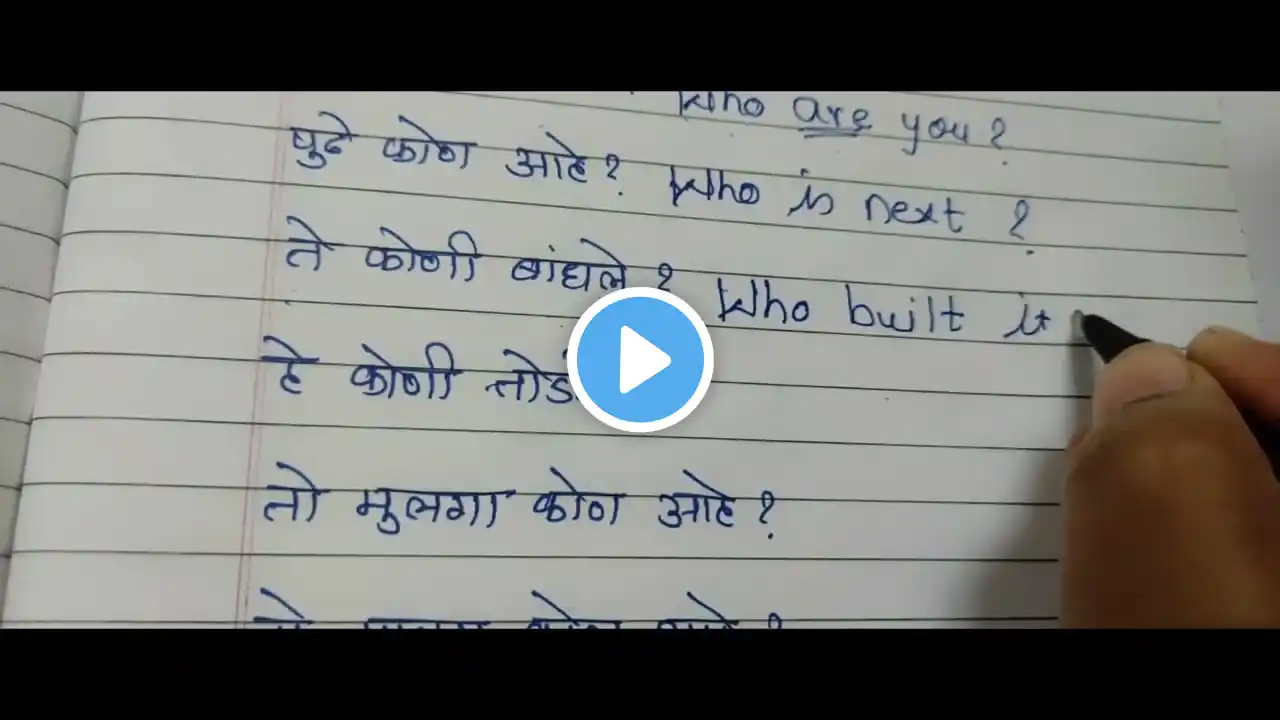 Who are you?
पुढे कोण आहे? Who is next ?
ते कोणी बांधले ? Who built it
हे कोणी
तो मुलगा कोण आहे ?